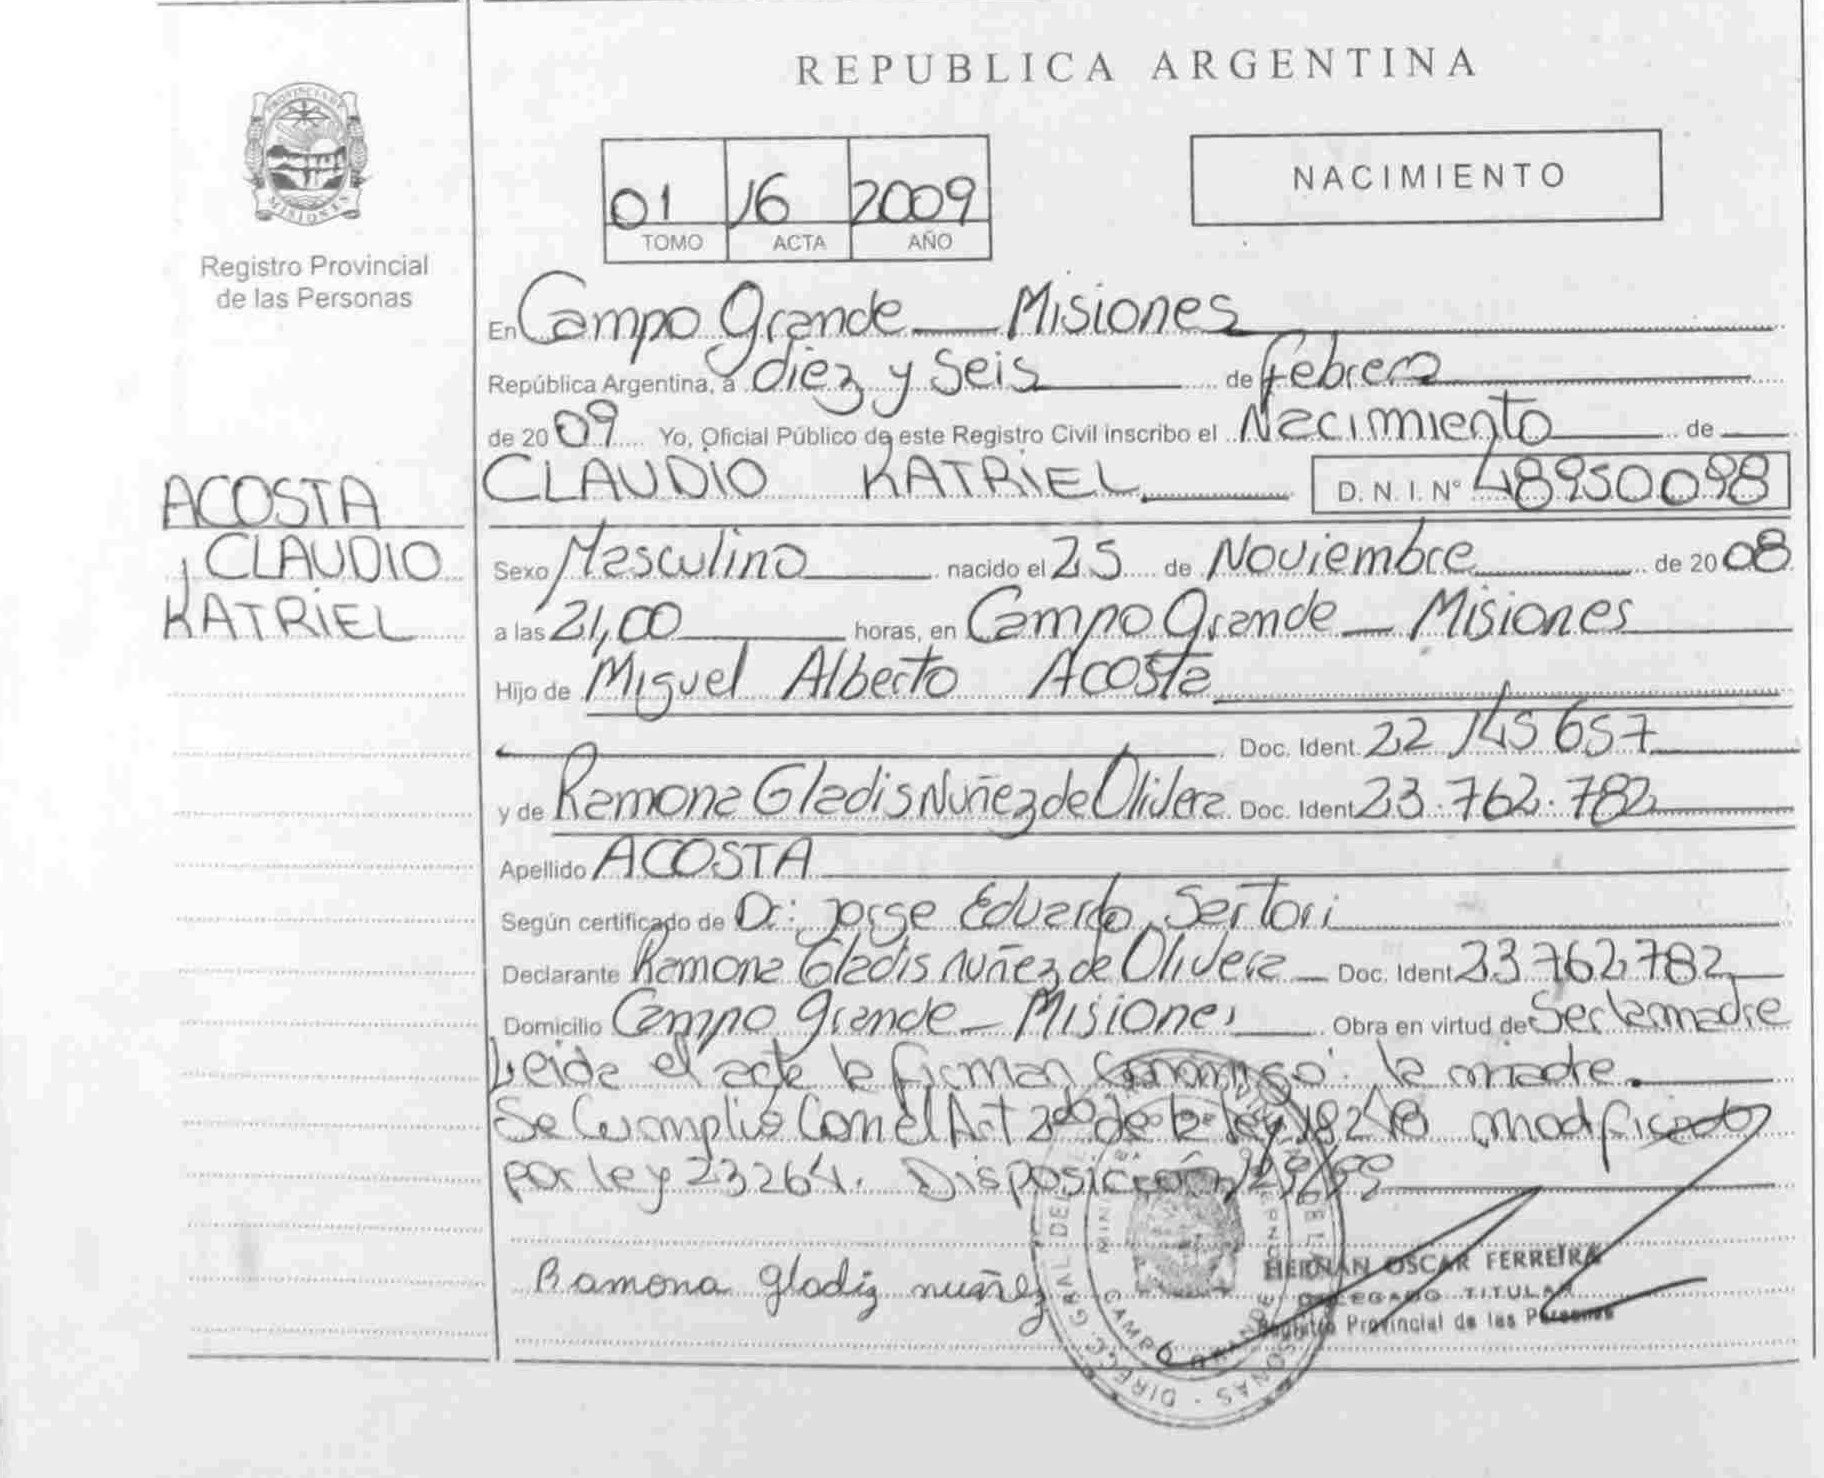 REPUBLICA ARGENTINA
PROVINCIA DE
MISIONES
Registro Provincial
de las Personas
01 16 2009
TOMO ACTA AÑO
NACIMIENTO
En Campo Grande Misiones
República Argentina, a diez y seis de febrero
de 2009 Yo, Oficial Público de este Registro Civil inscribo el Nacimiento de
CLAUDIO KATRIEL D. N. I. Nº 48950098
ACOSTA
, CLAUDIO
KATRIEL
Sexo Masculino nacido el 25 de Noviembre de 2008
a las 21,00 horas, en Campo Grande Misiones
Hijo de Miguel Alberto Acosta
Doc. Ident. 22 145 657
y de Ramona Gladis Nuñez de Olivera Doc. Ident. 23.762.782
Apellido ACOSTA
Según certificado de Dr: Jorge Eduardo Sartori
Declarante Ramona Gladis Nuñez de Olivera Doc. Ident. 23762782
Domicilio Campo Grande Misiones Obra en virtud de Ser la madre
Leida el acta la firman conmigo: la madre.
Se Cumplió Con el Art 2do de la ley 18248 modificado
por ley 23264. Disposición
Ramona gladiz nuñez
HERNAN OSCAR FERREIRA
DELEGADO TITULAR
Registro Provincial de las Personas